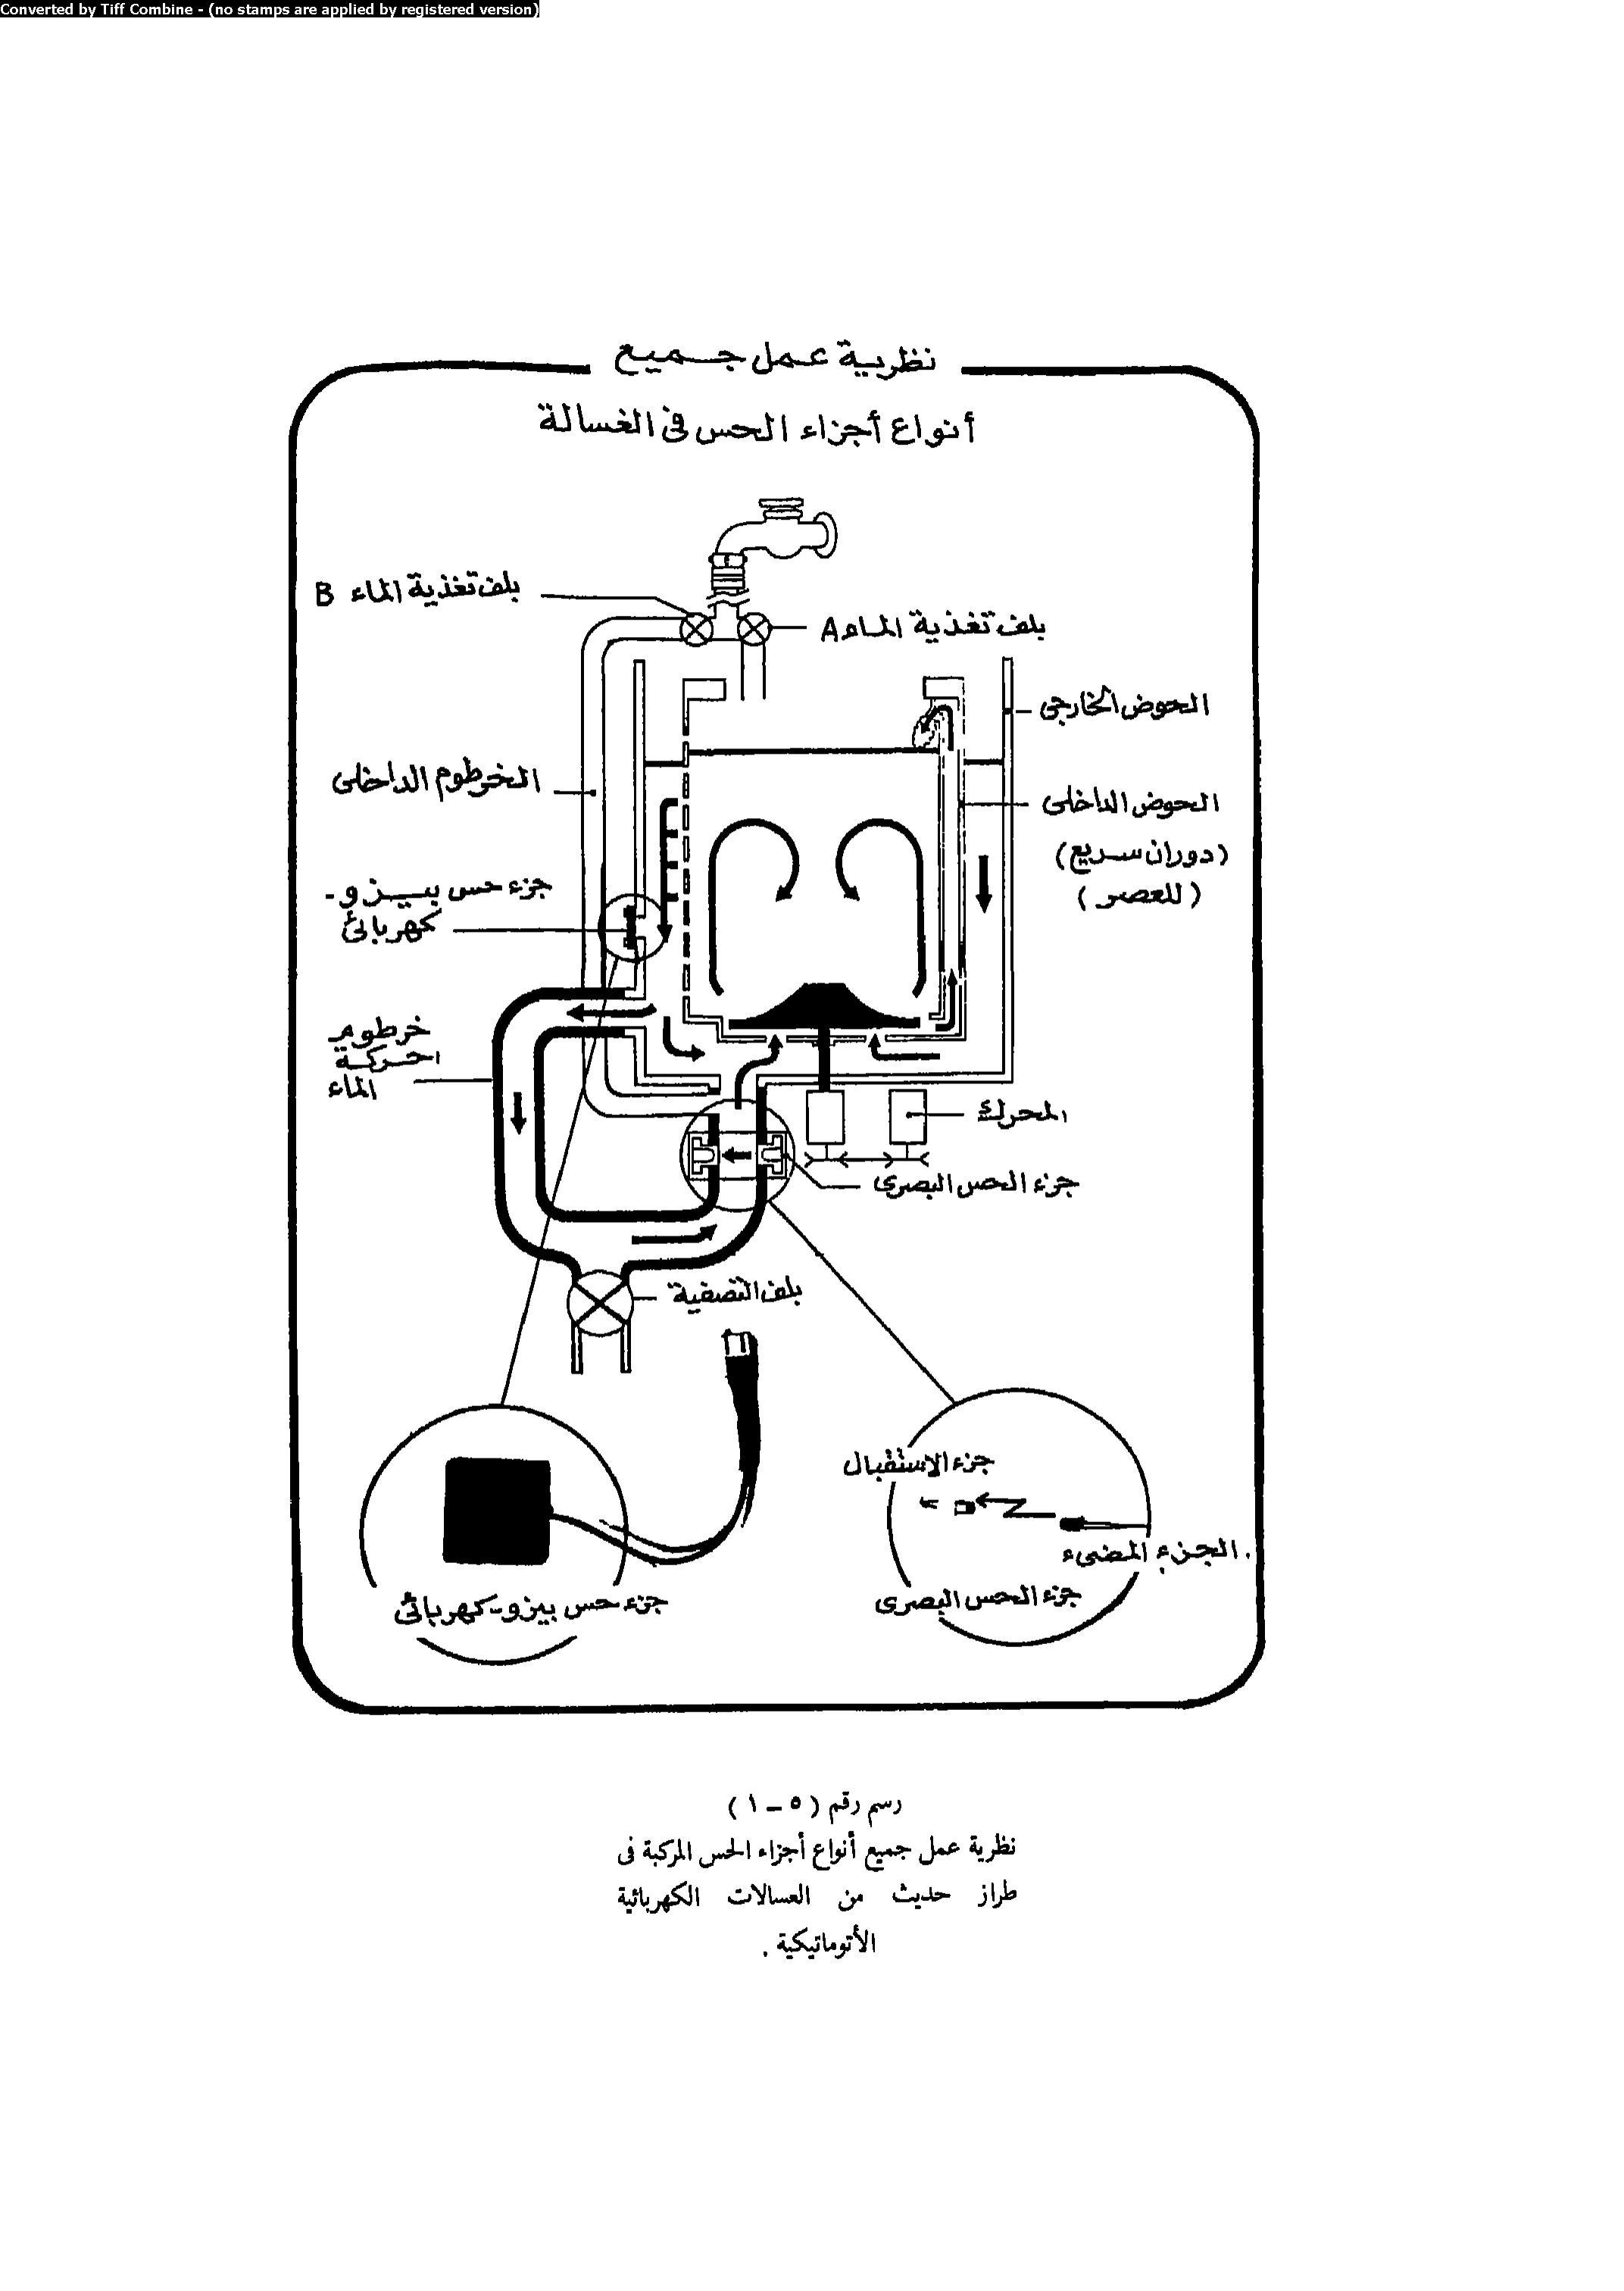 Converted by Tiff Combine - (no stamps are applied by registered version)
نظرية عمل جميع
أنواع أجزاء الحس فى الغسالة
بلف تغذية الماء B
بلف تغذية الماء A
الحوض الخارجى
الخرطوم الداخلى
الحوض الداخلى
(دوران سريع)
(للعصر)
جزء حس بيزو-
كهربائى
خرطوم
احركة
الماء
المحرك
جزء الحس البصرى
بلف التصفية
جزء الاستقبال
الجزء المضىء.
جزء الحس البصرى
جزء حس بيزو-كهربائى
رسم رقم ( ٥ – ١ )
نظرية عمل جميع أنواع أجزاء الحس المركبة فى
طراز حديث من العسالات الكهربائية
الأتوماتيكية .